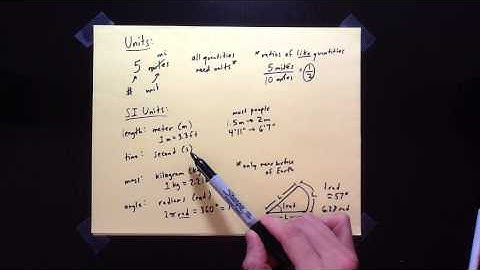 Units:
mi
5 miles
# unit
all quantities
need units*
*ratios of like quantities
5 miles
10 miles
= 1/2
SI Units:
length: meter (m)
1 m = 3.3 ft
most people
1.5m → 2m
4'11" → 6'7"
time: second (s)
mass: kilogram (kg)
1 kg = 2.2
*only near surface
of Earth
angle: radians (rad)
2π rad = 360° =
1 rad
L
1 rad
= 57°
6.28 rad